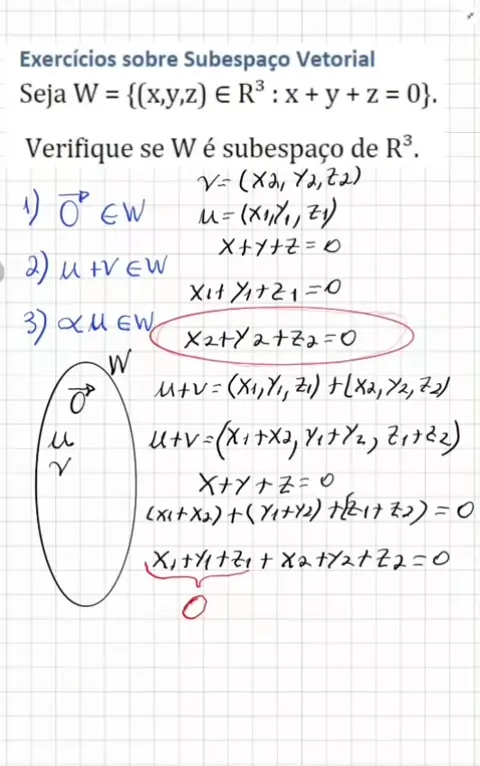 Exercícios sobre Subespaço Vetorial
Seja W = {(x,y,z) ∈ R³ : x + y + z = 0}.
Verifique se W é subespaço de R³.
v = (x2, y2, z2)
1) 0⃗ ∈ W
u = (x1, y1, z1)
x + y + z = 0
2) u + v ∈ W
x1 + y1 + z1 = 0
3) αu ∈ W
x2 + y2 + z2 = 0
W
0⃗
u
v
u + v = (x1, y1, z1) + (x2, y2, z2)
u + v = (x1 + x2, y1 + y2, z1 + z2)
x + y + z = 0
(x1 + x2) + (y1 + y2) + (z1 + z2) = 0
x1 + y1 + z1 + x2 + y2 + z2 = 0
0